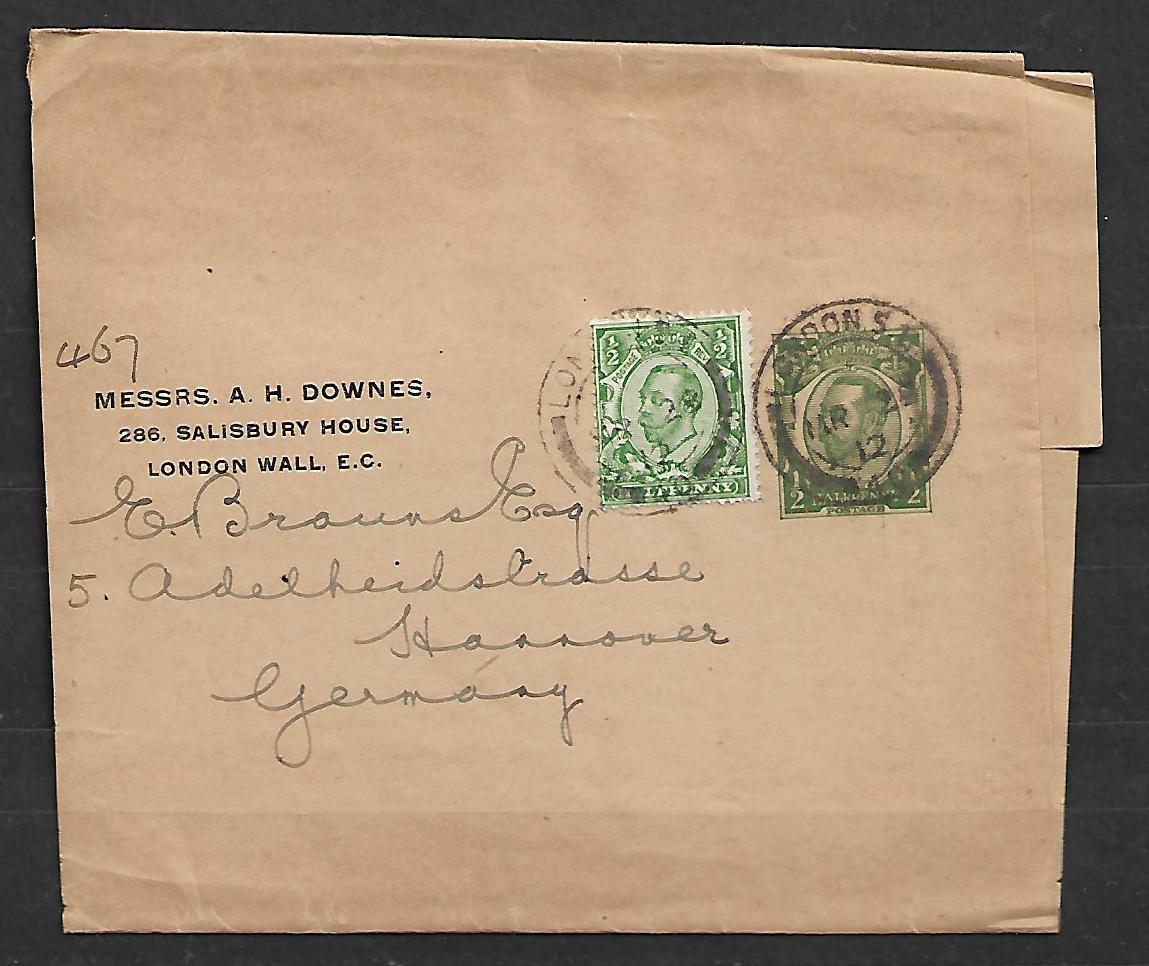 467
MESSRS. A. H. DOWNES,
286, SALISBURY HOUSE,
LONDON WALL, E.C.
E. Brauns Esq
5. Adelheidstrasse
Hannover
Germany
1/2 1/2
POSTAGE
HALFPENNY
28
12
LONDON. S
MAR
12
1/2 1/2
HALFPENNY
POSTAGE